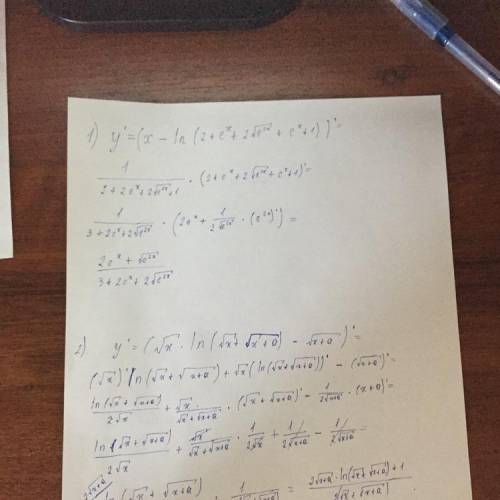 1) y' = (x − ln(2+e^x+2√(e^2x) + e^x+1))' =
1/(2+2e^x+2√(e^2x)+1) · (2+e^x+2√(e^2x)+e^x+1)' =
1/(3+2e^x+2√(e^2x)) · (2e^x + 1/(2√(e^2x)) · (e^2x)') =
(2e^x + √(e^2x))/(3+2e^x+2√(e^2x))
2) y' = (√x · ln(√x+√(x+a)) − √(x+a))' =
(√x)' ln(√x+√(x+a)) + √x(ln(√x+√(x+a)))' − (√(x+a))' =
ln(√x+√(x+a))/(2√x) + √x/(√x+√(x+a)) · (√x+√(x+a))' − 1/(2√(x+a)) · (x+a)' =
ln(√x+√(x+a))/(2√x) + √x/(√x+√(x+a)) · 1/(2√x) + 1/(2√(x+a)) − 1/(2√(x+a)) =